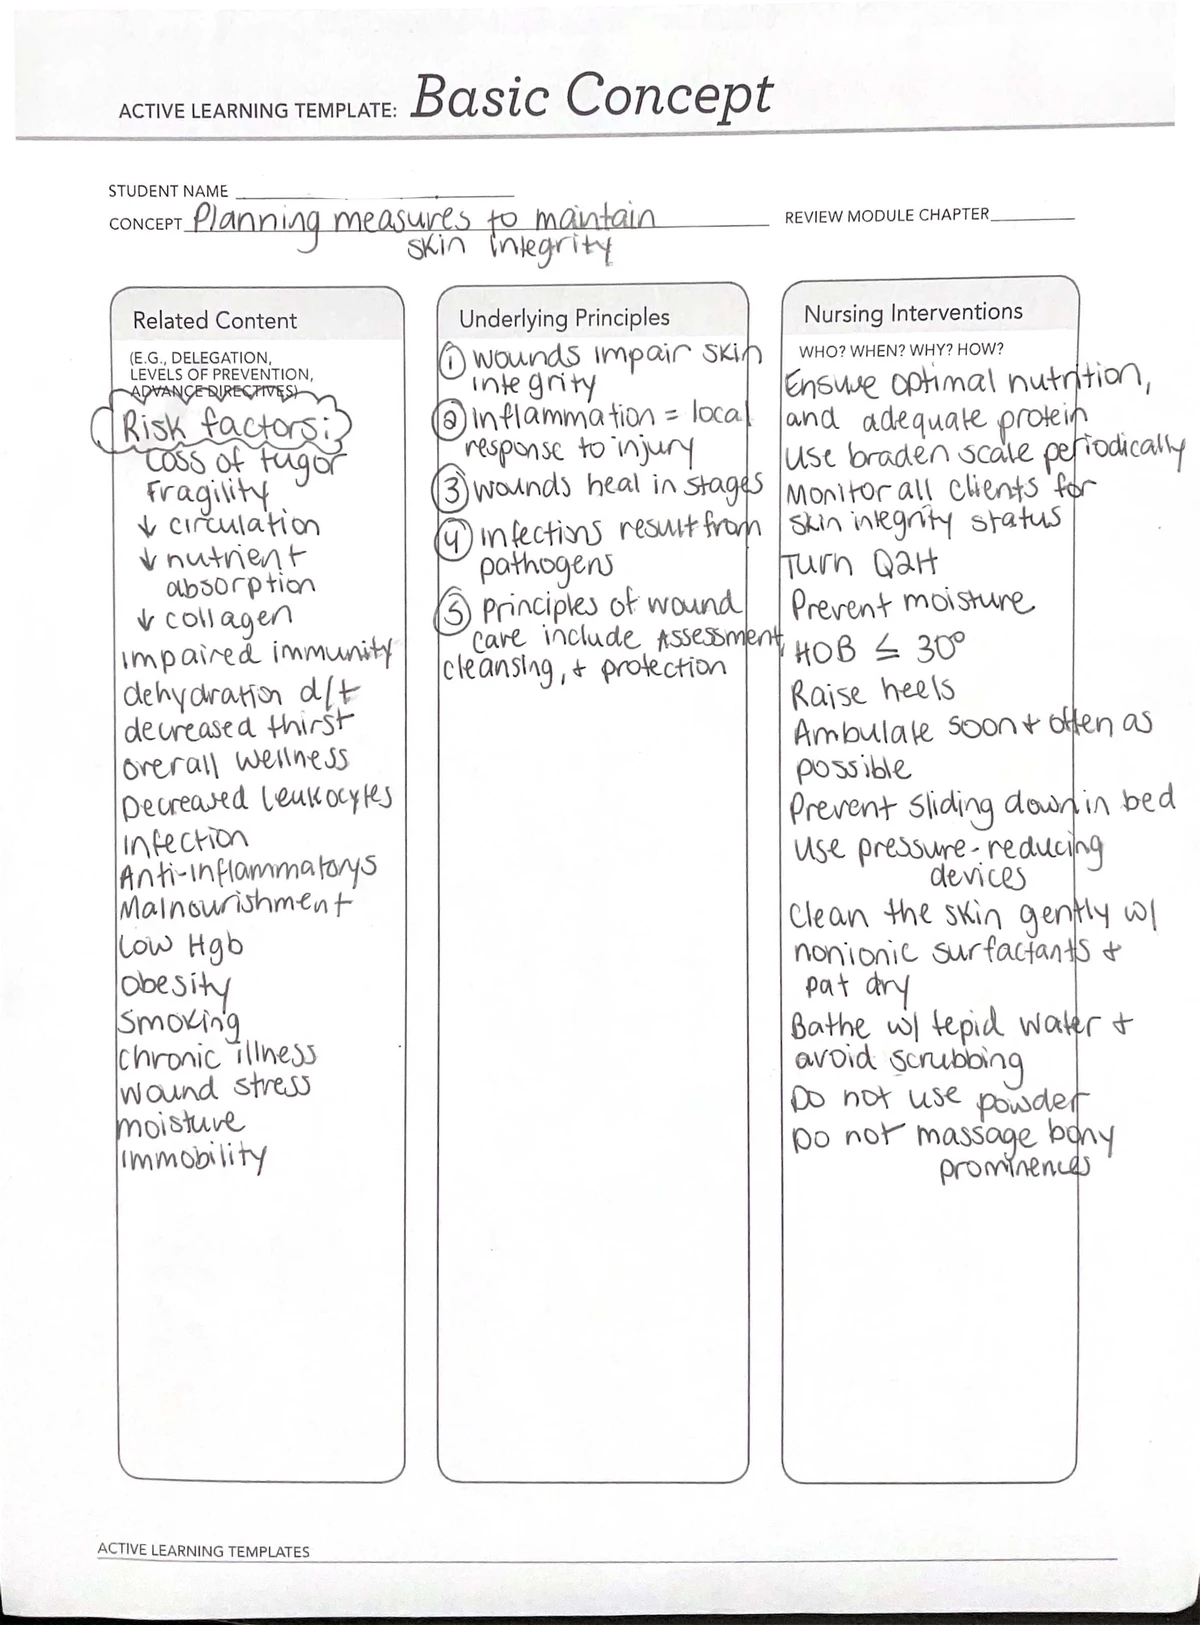 ACTIVE LEARNING TEMPLATE: Basic Concept
STUDENT NAME
CONCEPT Planning measures to maintain
skin integrity
REVIEW MODULE CHAPTER
Related Content
(E.G., DELEGATION,
LEVELS OF PREVENTION,
ADVANCE DIRECTIVES)
Risk factors:
Loss of tugor
Fragility
↓ circulation
↓ nutrient
absorption
↓ collagen
impaired immunity
dehydration d/t
decreased thirst
overall wellness
Decreased Leukocytes
Infection
Anti-inflammatorys
Malnourishment
Low Hgb
Obesity
Smoking
chronic illness
Wound stress
moisture
immobility
Underlying Principles
① wounds impair skin
integrity
② inflammation = local
response to injury
③ wounds heal in stages
④ infections result from
pathogens
⑤ principles of wound
care include Assessment,
cleansing, + protection
Nursing Interventions
WHO? WHEN? WHY? HOW?
Ensure optimal nutrition,
and adequate protein
Use braden scale periodically
Monitor all clients for
skin integrity status
Turn Q2H
Prevent moisture
HOB ≤ 30°
Raise heels
Ambulate soon + often as
possible
Prevent sliding down in bed
Use pressure-reducing
devices
Clean the skin gently w/
nonionic surfactants +
pat dry
Bathe w/ tepid water +
avoid scrubbing
Do not use powder
Do not massage bony
prominences
ACTIVE LEARNING TEMPLATES